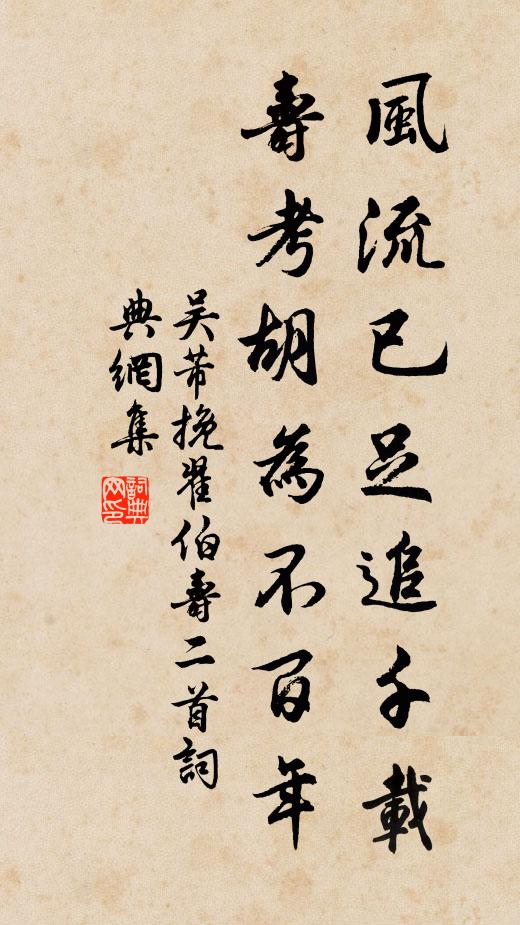 風流已足追千載
壽考胡為不百年
吳芾挽翟伯壽二首詞
典網集
詞典
网印